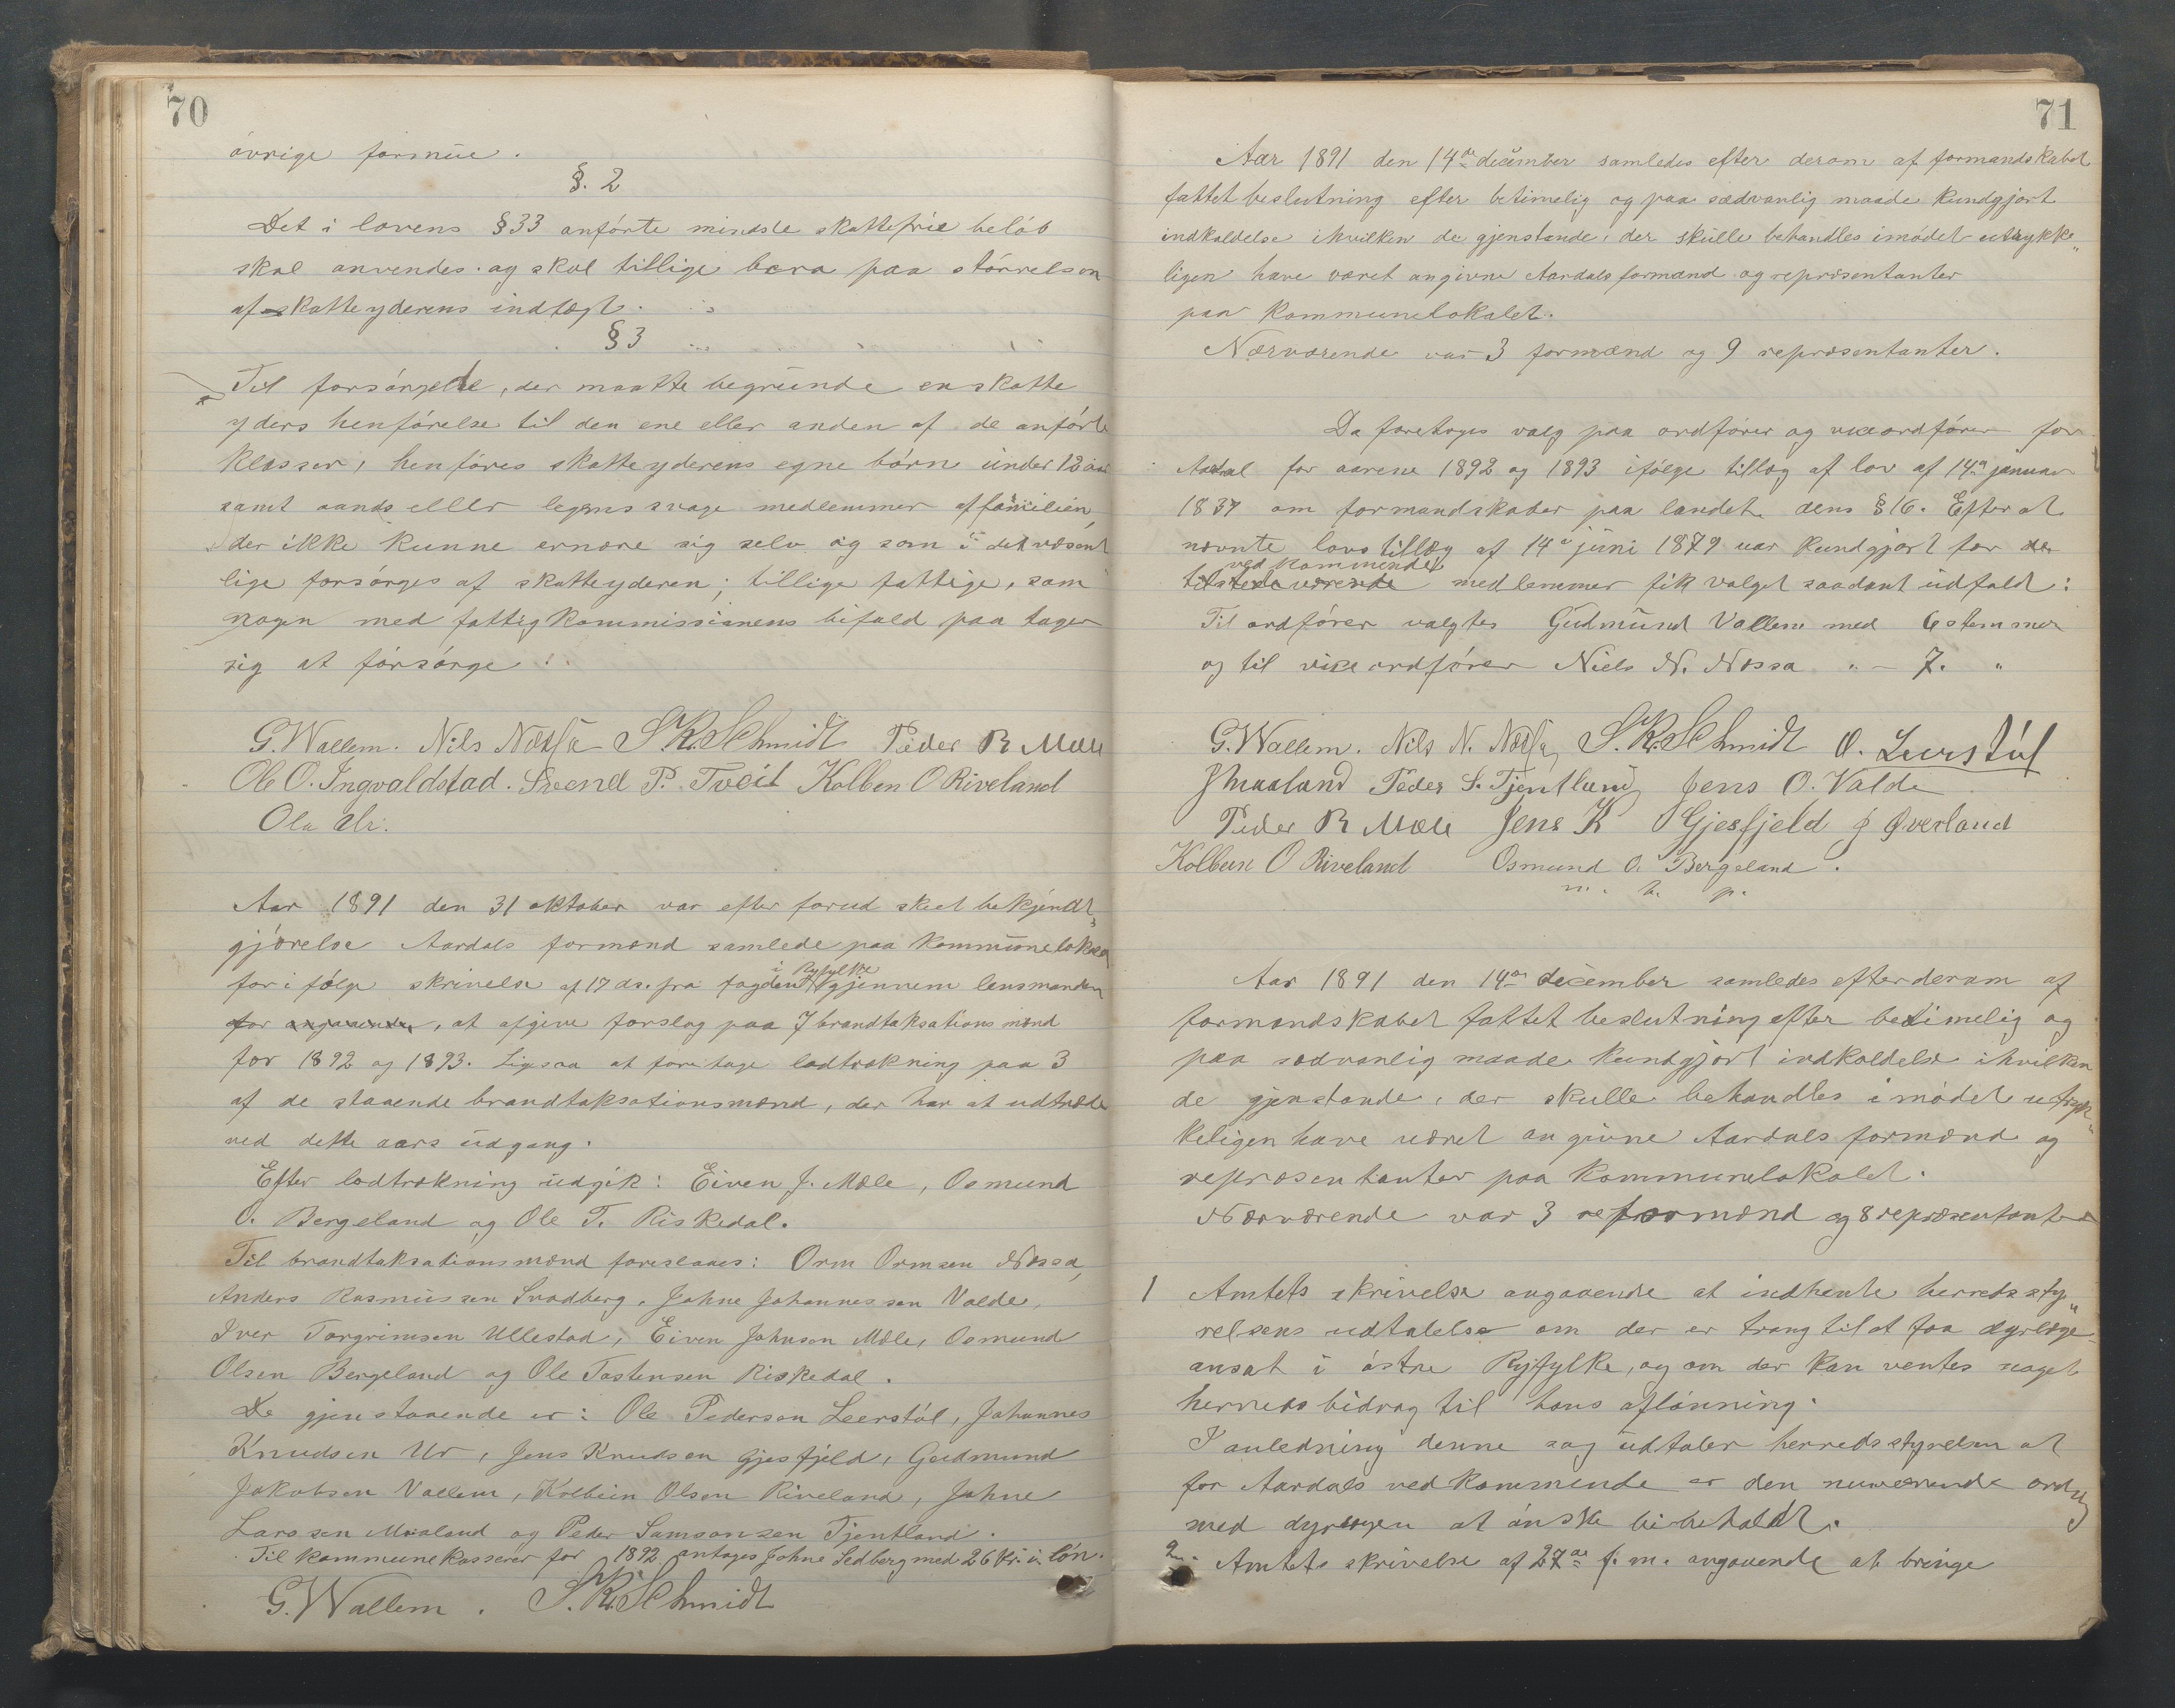 70
øvrige formue.
§. 2
Det i lovens §33 anførte mindste skattefrie beløb
skal anvendes. og skal tillige bero paa størrelsen
af skatteyderens indtægt.
§3
Til forsørgelse, der maatte begrunde en skatte
yders henførelse til den ene eller anden af de anførte
klasser, henføres skatteyderens egne børn under 12 aar
samt aands eller legems svage medlemmer af familien,
der ikke kunne ernære sig selv og som i det væsent
lige forsørges af skatteyderen; tillige fattige, som
nogen med fattigkommissionens bifald paa tager
sig at forsørge.
G. Wallem. Nils Nøssa S. R. Schmidt Peder R Mæle
Ole O. Ingvaldstad. Svend P. Tveit Kolben O Riveland
Ola Ur.
Aar 1891 den 31 oktober var efter forud skeet bekjendt„
gjørelse Aardals formænd samlede paa kommunelokalet
for i følge skrivelse af 17 ds. fra fogden i Ryfylke gjennem lensmanden
for angaaende, at afgive forslag paa 7 brandtaksationsmænd
for 1892 og 1893. Ligesaa at foretage lodtrækning paa 3
af de staaende brandtaksationsmænd, der har at udtræde
ved dette aars udgang.
Efter lodtrækning udgik: Eiven J. Mæle, Osmund
O. Bergeland og Ole T. Riskedal.
Til brandtaksationsmænd foreslaaes: Orm Ormsen Nøssa,
Anders Rasmussen Svadberg, Johne Johannessen Valde,
Iver Torgrimsen Ullestad, Eiven Johnson Mæle, Osmund
Olsen Bergeland og Ole Tostensen Riskedal.
De gjenstaaende er: Ole Pedersen Leerstøl, Johannes
Knudsen Ur, Jens Knudsen Gjesfjeld, Gudmund
Jakobsen Vallem, Kolbein Olsen Riveland, Johne
Larssen Maaland og Peder Samsonsen Tjentland.
Til kommunekasserer for 1892 antages Johne Sedberg med 26 kr. i løn.
G. Wallem. S. R. Schmidt
71
Aar 1891 den 14de december samledes efter derom af formandskabet
fattet beslutning efter betimelig og paa sædvanlig maade kundgjort
indkaldelse i hvilken de gjenstande, der skulle behandles i mødet udtrykke„
ligen have været angivne Aardals formænd og repræsentanter
paa kommunelokalet.
Nærværende var 3 formænd og 9 repræsentanter.
Da foretoges valg paa ordfører og viceordfører for
Aardal for aarene 1892 og 1893 ifølge tillæg af lov af 14de januar
1837 om formandskaber paa landet dens §16. Efter at
nævnte lovs tillæg af 14de juni 1879 var kundgjort for de
tilstedeværende vedkommende medlemmer fik valget saadant udfald:
Til ordfører valgtes Gudmund Vallem med 6 stemmer
og til viceordfører Niels N. Nøssa „ - 7. „
G. Wallem. Nils N. Nøssa, S. R. Schmidt O. Leerstøl
J Maaland Peder S. Tjentland, Jens O. Valde
Peder R Mæle Jens K Gjesfjeld J Øverland
Kolben O Riveland Osmund O. Bergeland.
m. h. p.
Aar 1891 den 14de december samledes efter derom af
formandskabet fattet beslutning efter betimelig og
paa sædvanlig maade kundgjort indkaldelse i hvilken
de gjenstande, der skulle behandles i mødet udtryk„
keligen have været angivne Aardals formænd og
repræsentanter paa kommunelokalet.
Nærværende var 3 formænd og 8 repræsentanter
1 Amtets skrivelse angaaende at indhente herredssty„
relsens udtalelse om der er trang til at faa dyrlæge
ansat i østre Ryfylke, og om der kan ventes noget
herredsbidrag til hans aflønning.
I anledning denne sag udtaler herredsstyrelsen at
for Aardals vedkommende er den nuværende ordng
med dyrlægen at ønske bibeholdt.
2. Amtets skrivelse af 27de f. m. angaaende at bringe